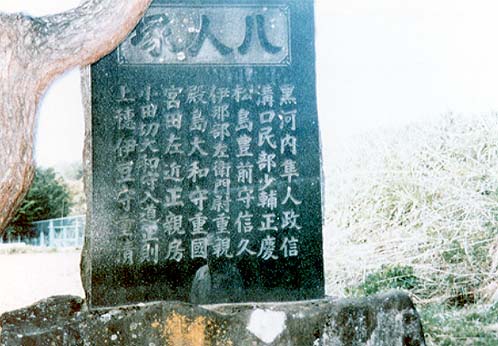 八人塚
黒河内隼人政信
溝口民部少輔正慶
松島豊前守信久
伊那部左衛門尉重親
殿島大和守重國
宮田左近正親房
小田切大和守入道正則
上穂伊豆守重清